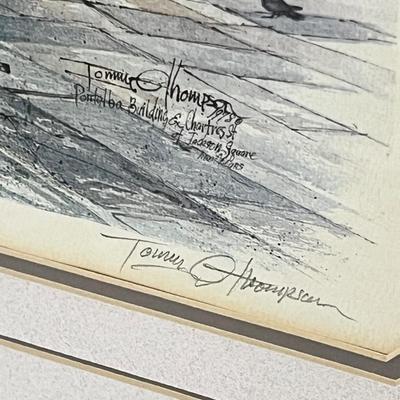 Tommy Thompson 1980
Pontalba Building & Chartres St
at Jackson Square
New Orleans
Tommy Thompson